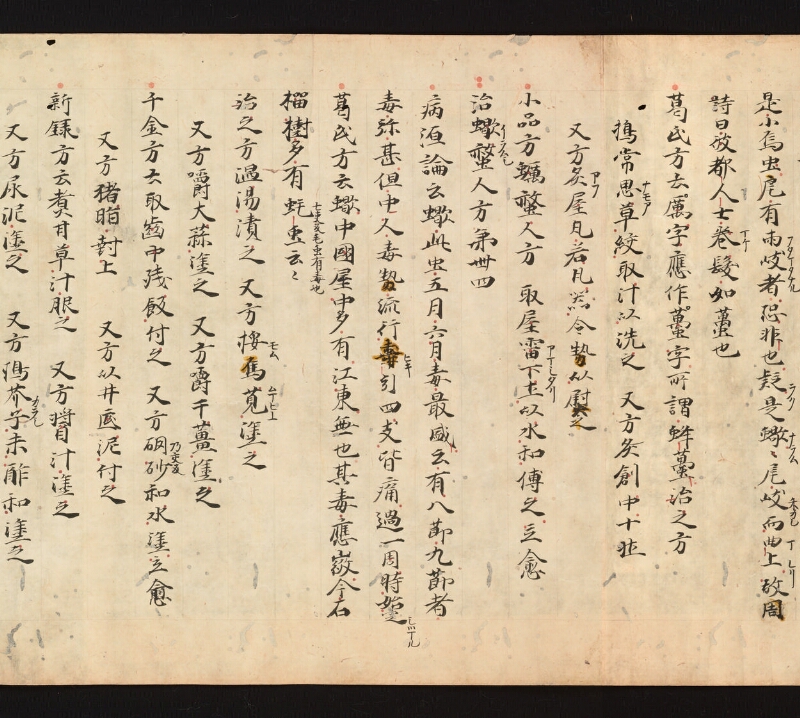 是小烏虫尾有両岐者恐非也疑是蠍〻尾岐而曲上故周
詩曰彼都人士巻髪如蠆也
葛氏方云厲字應作蠆字所謂蜂蠆治之方
挼常思草絞取汁以洗之 又方灸創中十壮
又方炙屋瓦若瓦器令熱以尉之
小品方蠣螫人方 取屋霤下土以水和傅之立愈
治蠍螫人方第卌四
病源論云蠍此虫五月六月毒最盛云有八節九節者
毒弥甚但中人毒勢流行牽引四支皆痛過一周時始定
葛氏方云蠍中國屋中多有江東無也其毒應微今石
榴樹多有蚝虫云〻
治之方温湯漬之 又方挼馬莧塗之
又方嚼大蒜塗之 又方嚼干薑塗之
千金方云取歯中残飯付之 又方硇砂和水塗立愈
又方猪脂封上 又方以井底泥付之
新録方云煮甘草汁服之 又方醤汁塗之
又方尿泥塗之 又方鴇芥子末酢和塗之